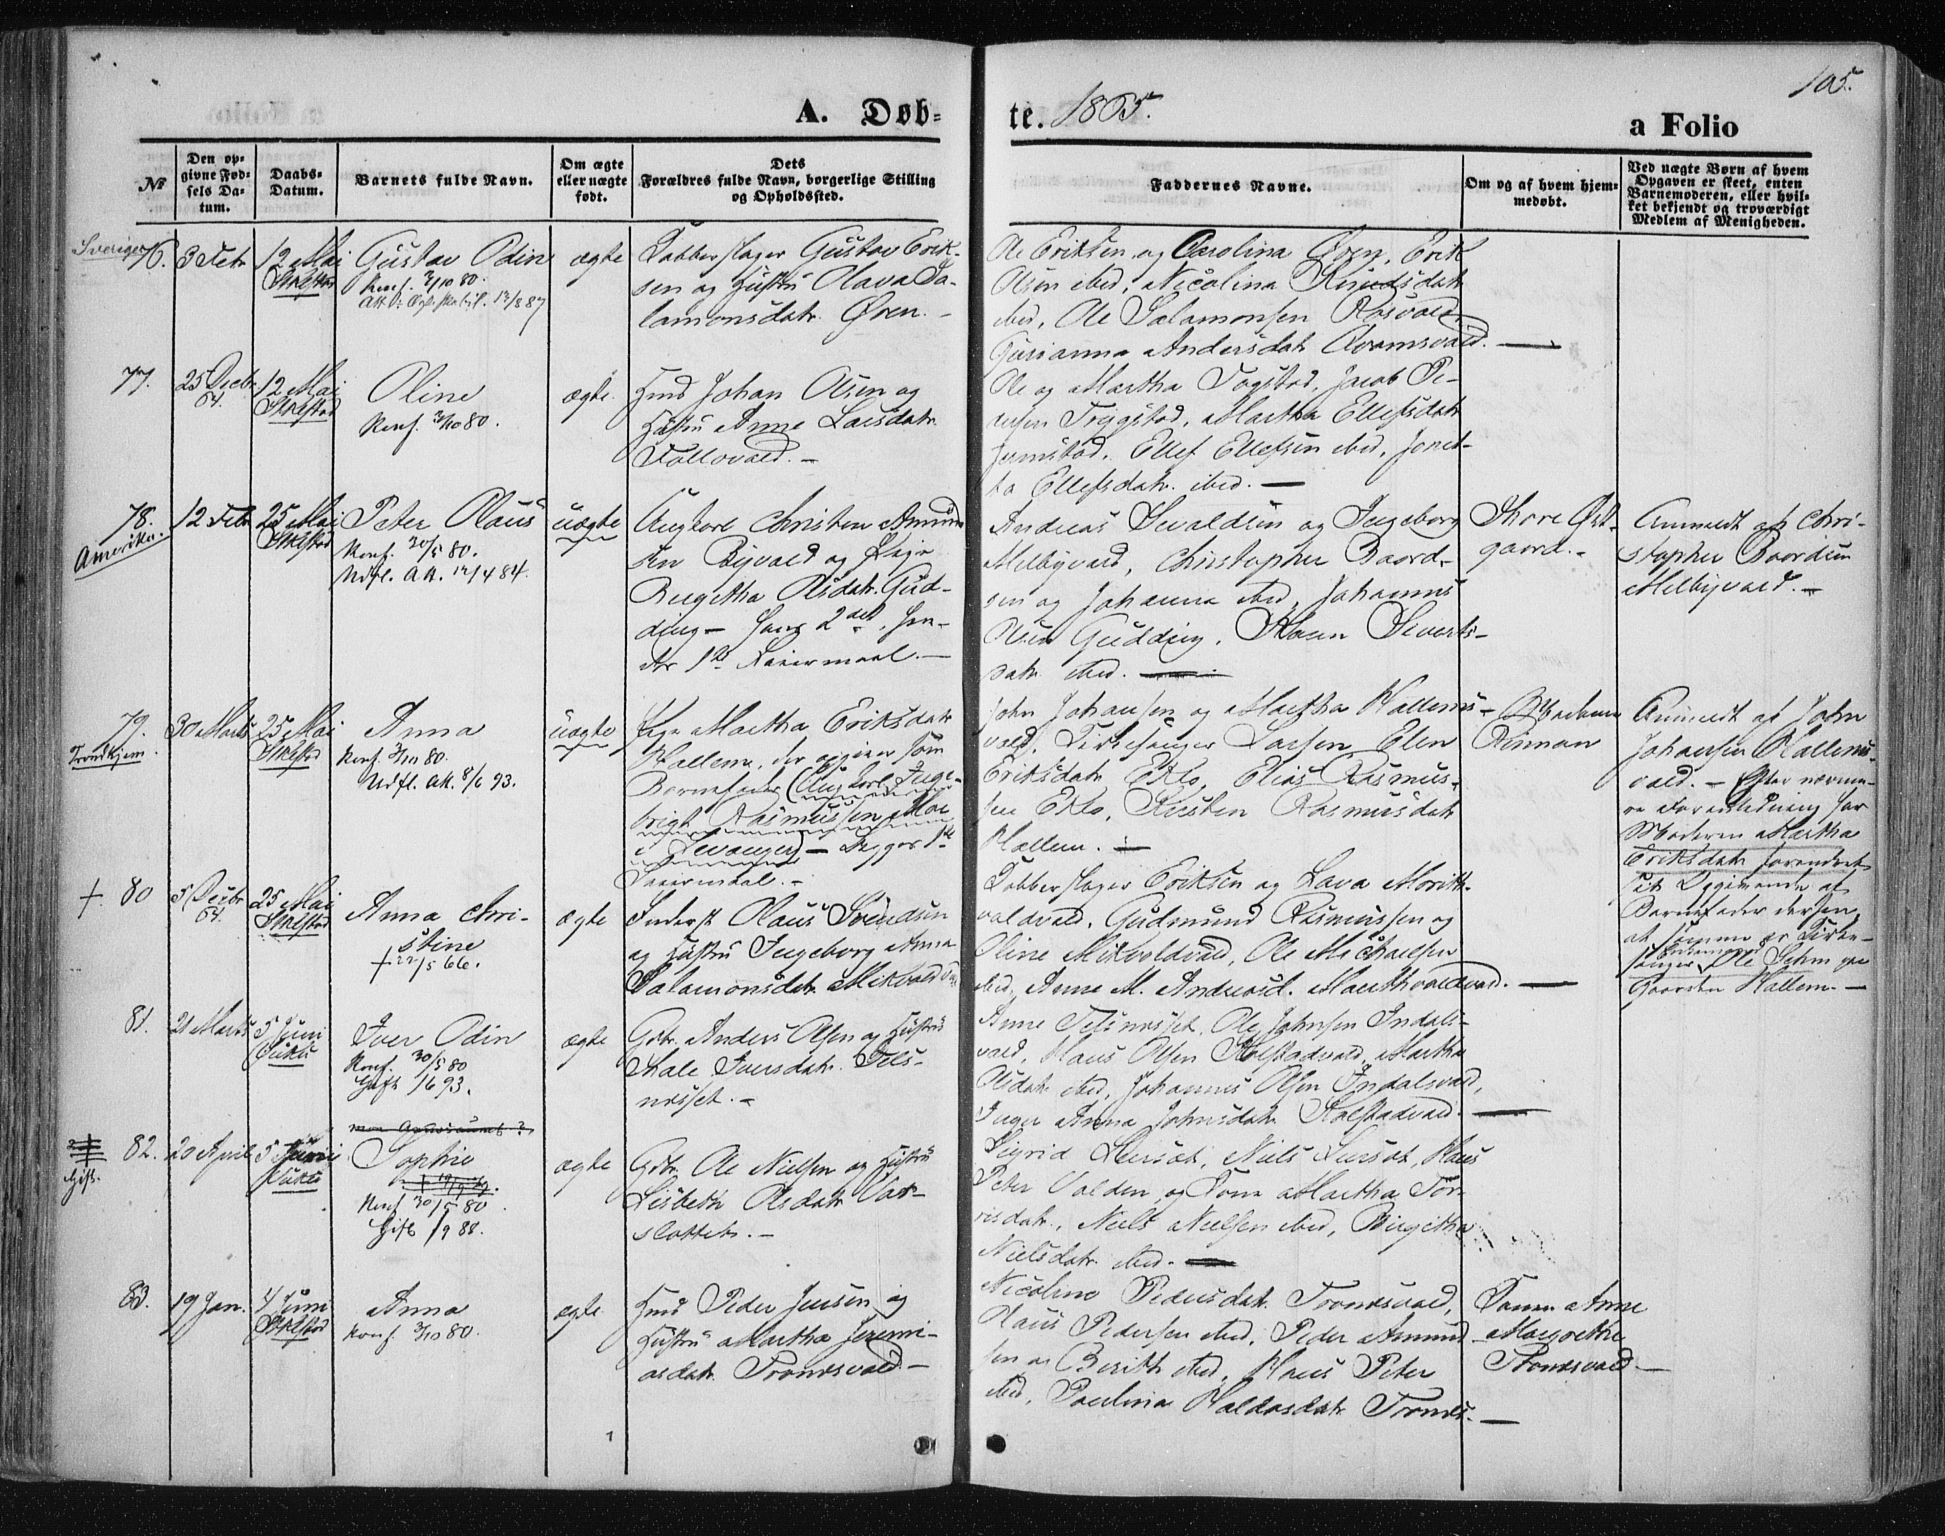 105.
A. Døb=
te. 1865.
a Folio
№
Den op=
givne Fød=
sels Da=
tum.
Daabs=
Datum.
Barnets fulde Navn.
Om ægte
eller uægte
født.
Dets
Forældres fulde Navn, borgerlige Stilling
og Opholdssted.
Faddernes Navne.
Om og af hvem hjem=
medøbt.
Ved uægte Børn af hvem
Opgaven er skeet, enten
Barnemoderen, eller hvil=
ket bekjendt og troværdigt
Medlem af Menigheden.
Sverige
76.
3 Febr
12 Mai
Stklstad
Gustav Odin
Konf. 3/10 80.
ægte
Kobberslager Gustav Erik-
sen og Hustru Olava Sa-
lamonsdatr Øren. -
Ole Eriksen og Carolina Øren, Erik
Olsen ibid, Nicolina Knudsdatr
ibid, Ole Salamonsen Rosvald
Gurianna Andersdatr Kvamsvald. —
77.
25 Decbr
64.
12 Mai
Stklstad
Oline
Konf. 3/10 80.
ægte.
Hmd Johan Olsen og
Hustru Anne Larsdatr
Follovald. -
Ole og Martha Fogstad, Jacob Pe-
dersen Tryggstad, Martha Ellefsdatr
Jermstad, Ellef Ellefsen ibid, Janet-
ta Ellefsdatr ibid. —
78.
Amerika.
12 Febr
25 Mai
Stklstad
Peter Olaus
Konf. 30/5 80.
Udfl. Att. 12/4 84.
uægte
Ungkarl Christen Amund-
sen Byvald og Pige
Birgitha Olsdatr Gud-
ding - Hans 2det, Hen-
des 1ste Leiermaal. —
Andreas Sevaldsen og Ingeborg
Melbyvald, Christopher Baard-
sen og Johanna ibid, Johannes
Olsen Gudding, Karen Siverts-
datr ibid. —
Thore Øst-
gaard. -
Anmeldt af Chri-
stopher Baardsen
Melbyvald. -
79.
Trondhjem.
30 Marts
25 Mai
Stklstad
Anna
Konf. 3/10 80.
Udfl. Att. 8/6 93.
uægte
Pige Martha Eriksdatr
Hallem, der opgiver som
Barnefader (Ungkarl Inge-
brigt Rasmussen Moe
i Levanger) - Begges 1ste
Leiermaal. -
John Johansen og Martha Hallems-
vald, Kirkesanger Larsen, Elen
Eriksdatr Eklo, Elias Rasmus-
sen Eklo, Kirsten Rasmusdatr
Hallem. —
Rinnan
Anmeldt af John
Johansen Hallems-
vald. - Efter nærme-
re Foranledning har
Moderen Martha
Eriksdatr forandret
sit Opgivende af
Barnefader dersen,
at samme er Kirke-
sanger Ole Sehm paa
Gaarden Hallem. —
†. 80
5 Decbr
64.
25 Mai
Stklstad
Anna Chri-
stine
† 22/5 66.
ægte
Inderst Olaus Svendsen
og Hustru Ingeborg Anna
Salamonsdatr Mikvoldvald
Kobberslager Eriksen og Lava Moritt-
valdvald, Gudmund Rasmussen og
Oline Mikvoldvald, Ole Michaelsen
ibid, Anne M. Andreasd. Marithvaldvald. —
81.
21 Marts
5 Juni
Vukku
Iver Odin
Konf. 30/5 80
Gift 16 93.
ægte
Gbr. Anders Olsen og Hustru
Male Iversdatr Tels-
næsset. -
Anne Telsnæsset, Ole Johnsen Indals-
vald, Olaus Olsen Holstadvald, Martha
Olsdatr ibid, Johannes Olsen Indalsvald,
Inger Anna Johnsdatr Kolstadvald. —
Gift.
82.
20 April
5 Juni
Vukku
Sophie
Konf 30/5 80
Gift 1/9 88.
ægte
Gbr. Ole Nielsen og Hustru
Lisbeth Olsdatr Vær-
slottet. -
Sigrid Leirset, Niels Leirset, Olaus
Peter Volden og Kone Martha Tor-
risdatr, Niels Nielsen ibid, Birgitha
Nielsdatr ibid. —
83.
19 Jan.
4 Juni
Stklstad
Anna
Konf. 3/10 80.
ægte
Hmd Peder Jensen og
Hustru Martha Jeremi-
asdatr Trondsvald. -
Nicoline Pedersdatr Trondsvald,
Olaus Pedersen ibid, Peder Amund-
sen og Berith ibid, Olaus Peter
ibid, Paulina Haldosdatr Tronds. —
Konen Anne
Margrethe
Trondsvald —